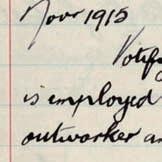 Novr 1915
Notif
is employed
outworker an